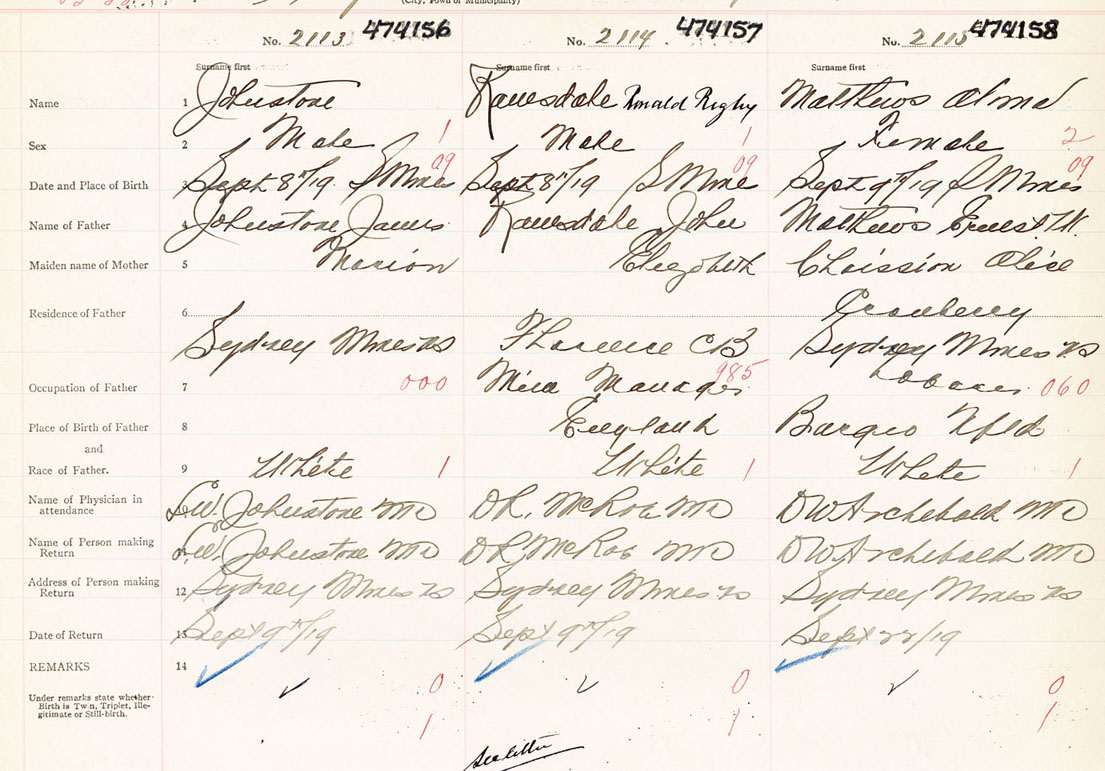 (City, Town or Municipality)
No. 2113 474156 No. 2114 474157 No. 2115 474158
Surname first Surname first Surname first
Name 1 Johnstone Ramsdale Ronald Rigby Matthews Alma
Sex 2 Male 1 Male 1 Female 2
09 09 09
Date and Place of Birth 3 Sept 8th/19 S Mines Sept 8th/19 S Mine Sept 9th/19 S Mines
Name of Father 4 Johnstone James Ramsdale John Matthews Ernest W.
Maiden name of Mother 5 Marion Elizabeth Chaission Alice
Residence of Father 6 Cranberry
Sydney Mines NS Florence CB Sydney Mines NS
Occupation of Father 7 000 Mine Manager 985 Laborer 060
Place of Birth of Father 8 England Burgeo Nfld
and
Race of Father. 9 White 1 White 1 White 1
Name of Physician in
attendance 10 L.W. Johnstone MD D R. McRae MD D W Archebald MD
Name of Person making
Return 11 L.W. Johnstone MD D R McRae MD D W Archebald MD
Address of Person making
Return 12 Sydney Mines NS Sydney Mines NS Sydney Mines NS
Date of Return 13 Sept 9th/19 Sept 9th/19 Sept 22/19
REMARKS 14
0 0 0
Under remarks state whether
Birth is Twin, Triplet, Ille-
gitimate or Still-birth.
1 1 1
See letter